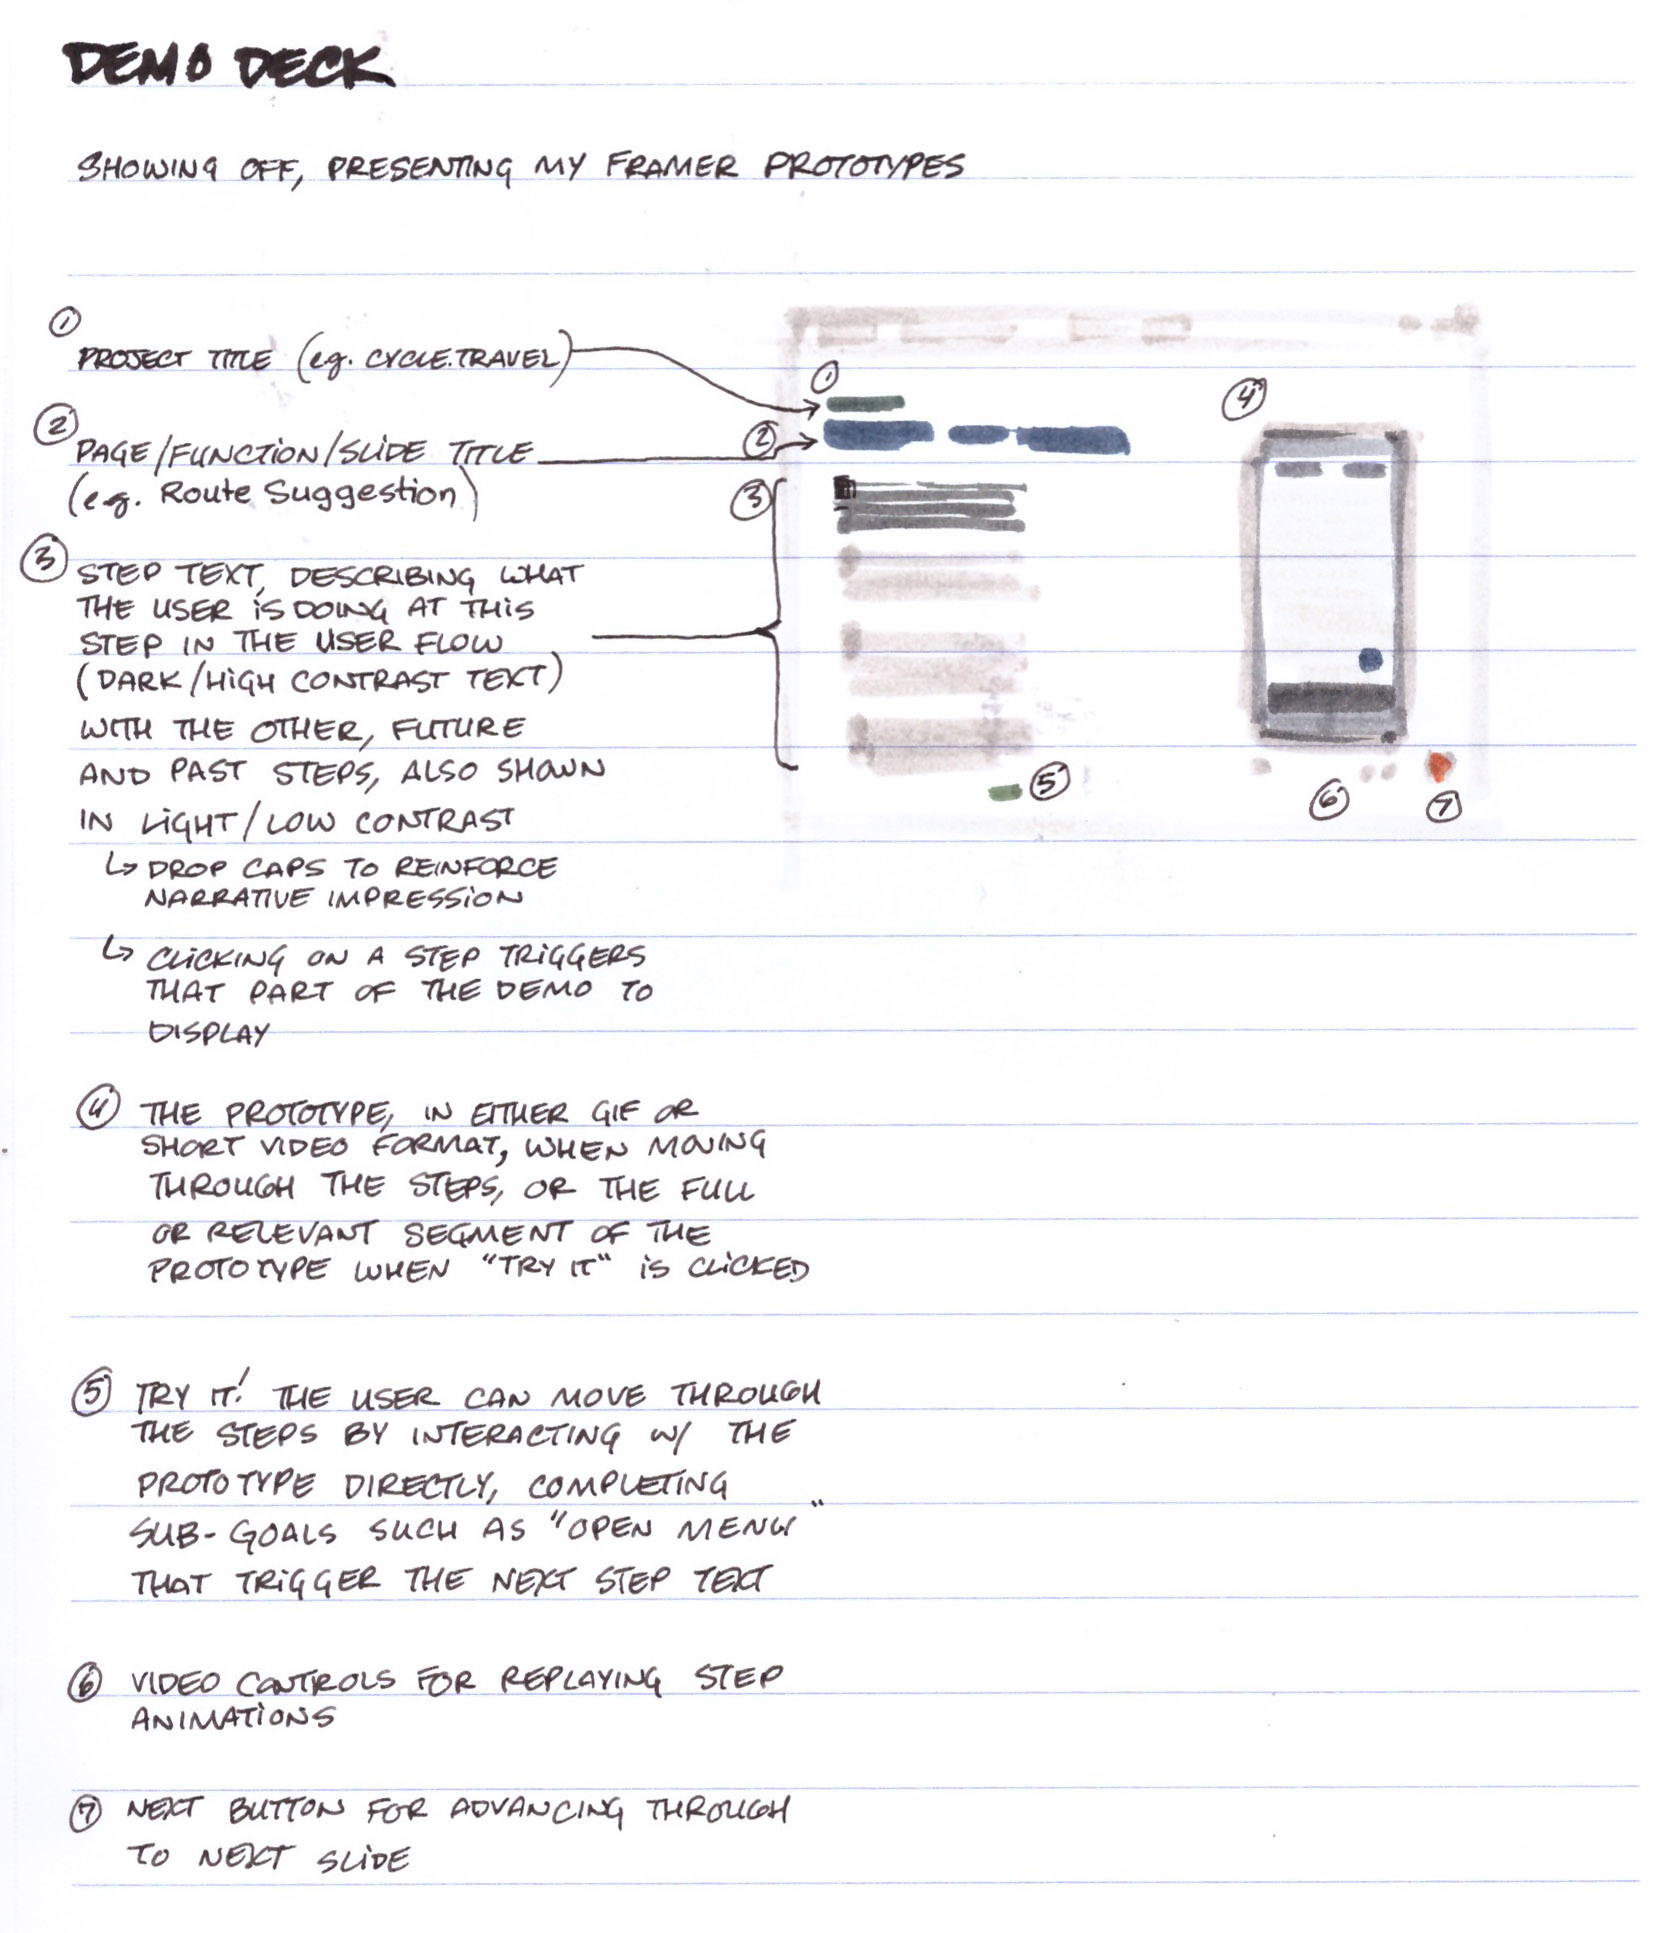 DEMO DECK
SHOWING OFF, PRESENTING MY FRAMER PROTOTYPES
①
PROJECT TITLE (eg. CYCLE.TRAVEL)
②
PAGE/FUNCTION/SLIDE TITLE
(e.g. Route Suggestion)
③ STEP TEXT, DESCRIBING WHAT
THE USER IS DOING AT THIS
STEP IN THE USER FLOW
(DARK/HIGH CONTRAST TEXT)
WITH THE OTHER, FUTURE
AND PAST STEPS, ALSO SHOWN
IN LIGHT/LOW CONTRAST
↳ DROP CAPS TO REINFORCE
NARRATIVE IMPRESSION
↳ CLICKING ON A STEP TRIGGERS
THAT PART OF THE DEMO TO
DISPLAY
④ THE PROTOTYPE, IN EITHER GIF OR
SHORT VIDEO FORMAT, WHEN MOVING
THROUGH THE STEPS, OR THE FULL
OR RELEVANT SEGMENT OF THE
PROTOTYPE WHEN "TRY IT" IS CLICKED
⑤ TRY IT! THE USER CAN MOVE THROUGH
THE STEPS BY INTERACTING W/ THE
PROTOTYPE DIRECTLY, COMPLETING
SUB-GOALS SUCH AS "OPEN MENU"
THAT TRIGGER THE NEXT STEP TEXT
⑥ VIDEO CONTROLS FOR REPLAYING STEP
ANIMATIONS
⑦ NEXT BUTTON FOR ADVANCING THROUGH
TO NEXT SLIDE
①
②
③
④
⑤
⑥
⑦